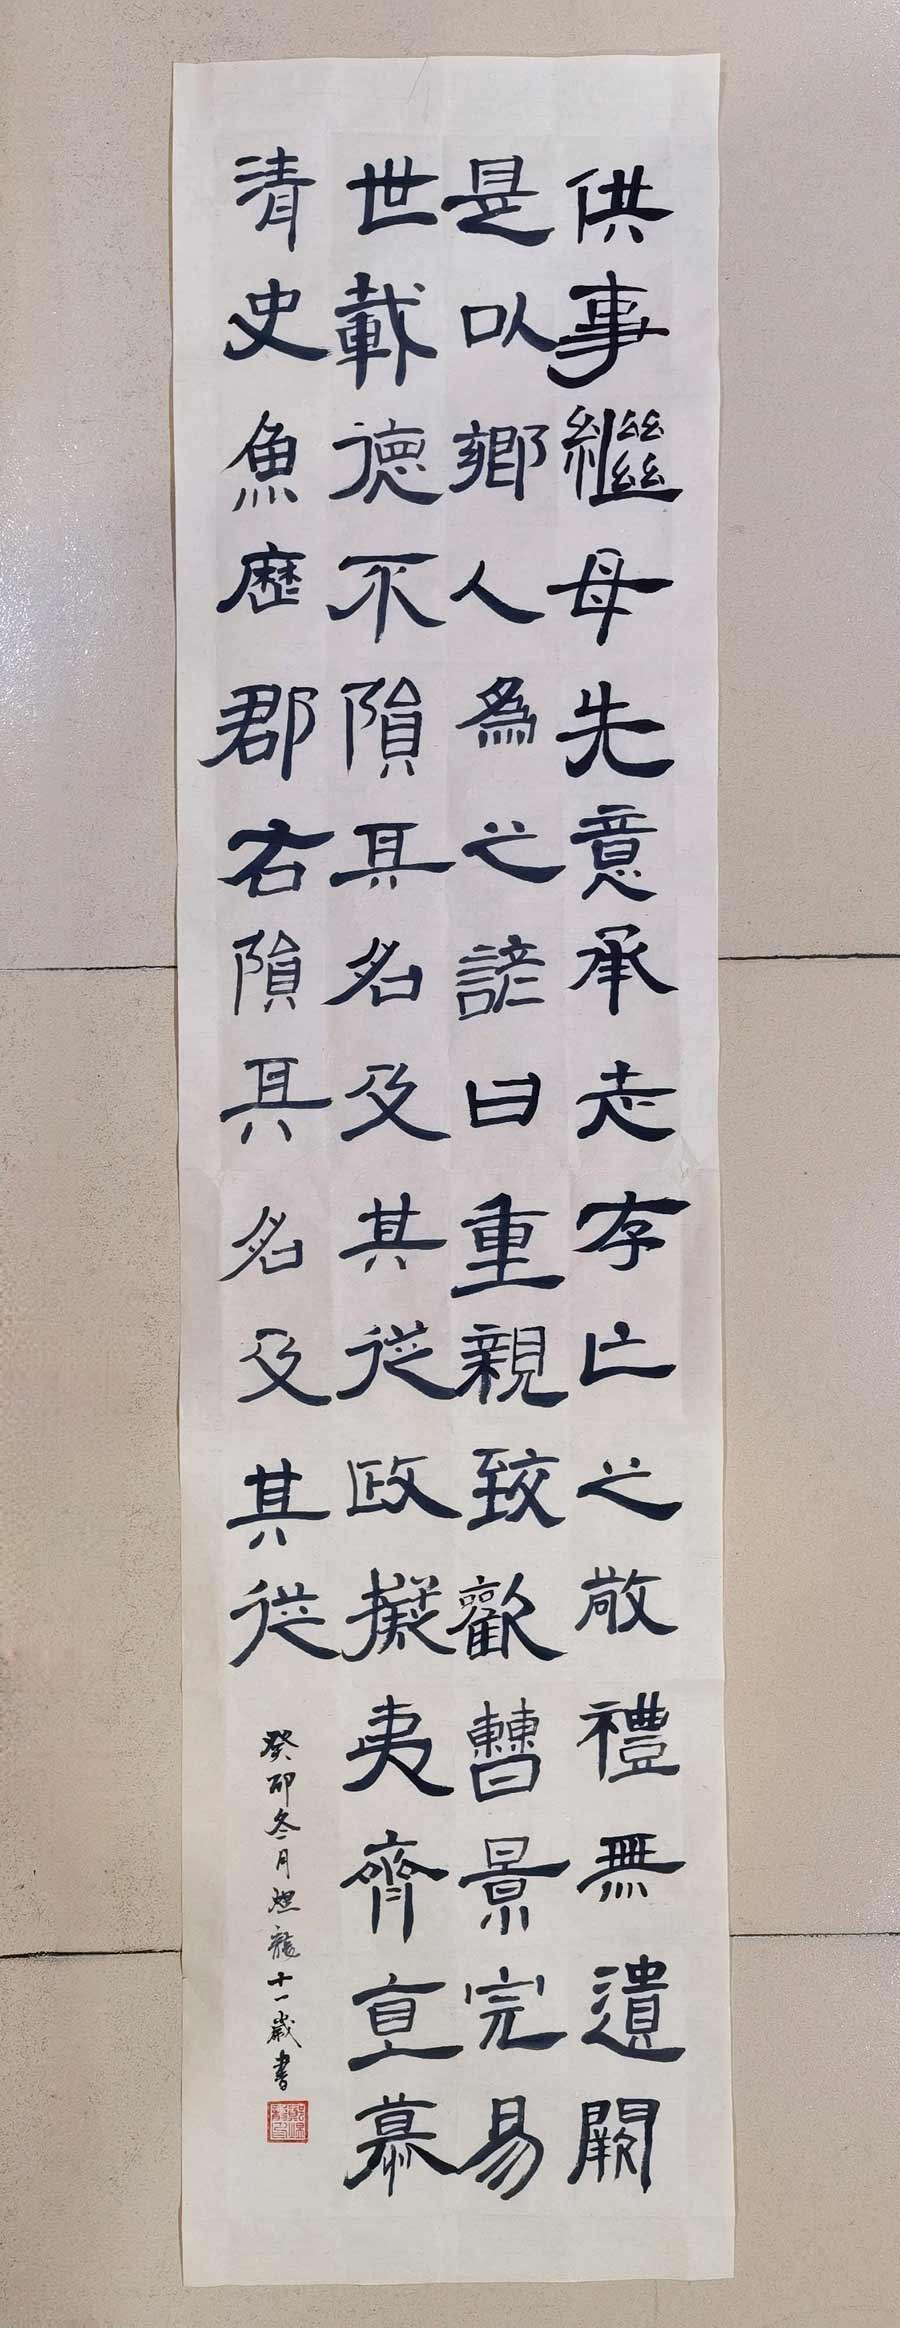 供事繼母先意承志存亡之敬禮無遺闕
是以鄉人為之諺曰重親致歡曹景完易
世載德不隕其名及其從政擬夷齊直慕
清史魚歷郡右隕其名及其從
癸卯冬月煜龍十一歲書